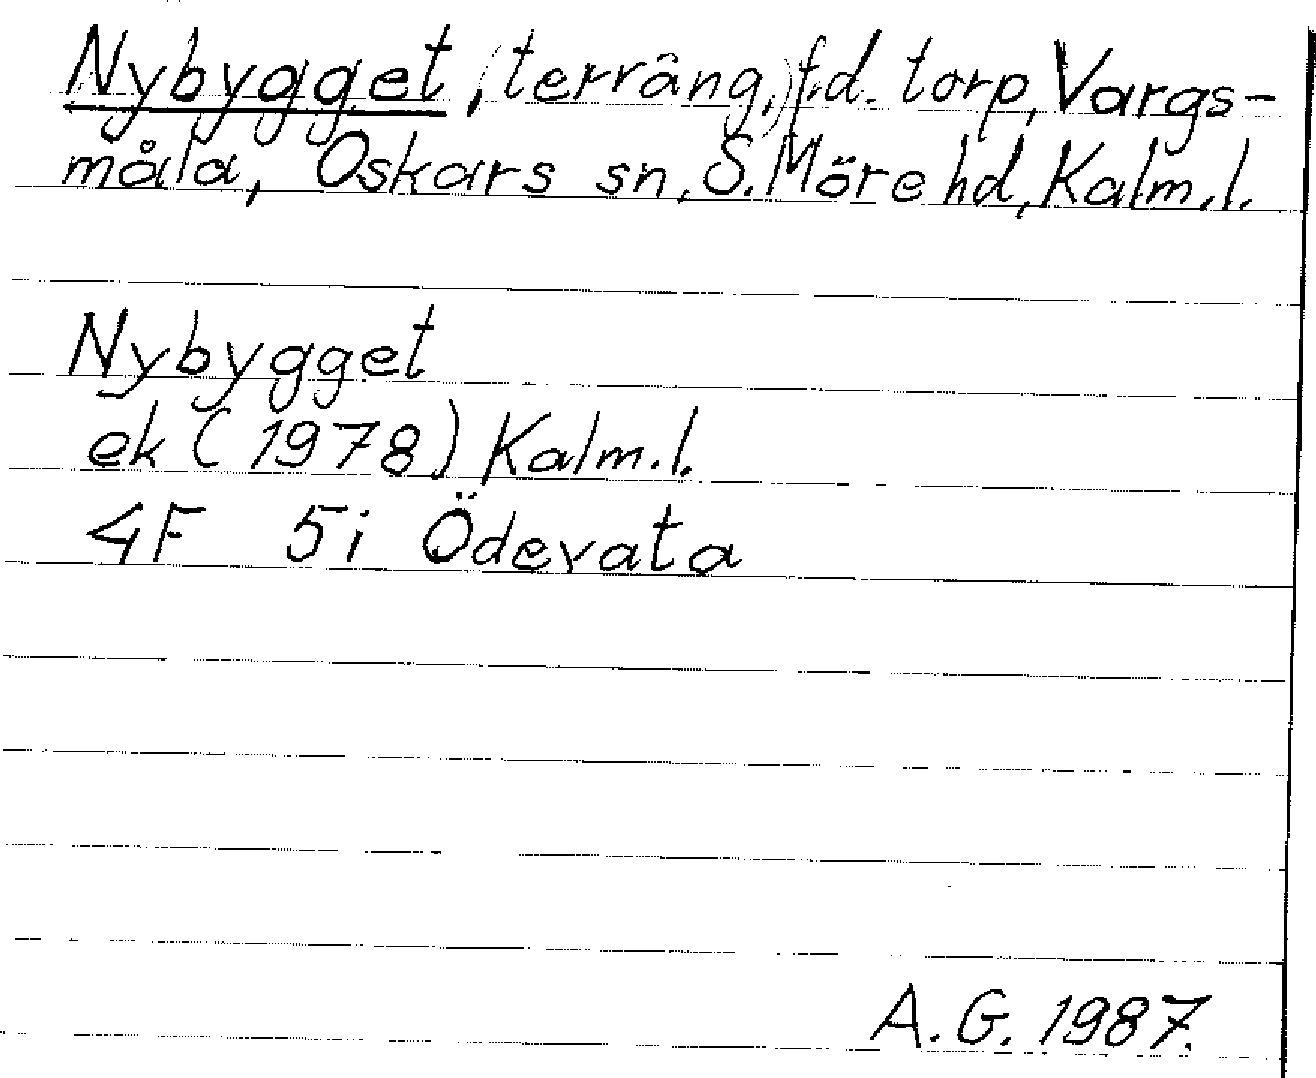 Nybygget, (terräng,) f.d. torp, Vargs-
måla, Oskars sn, S. Möre hd, Kalm. l.
Nybygget
ek (1978) Kalm. l.
4F 5i Ödevata
A. G. 1987.